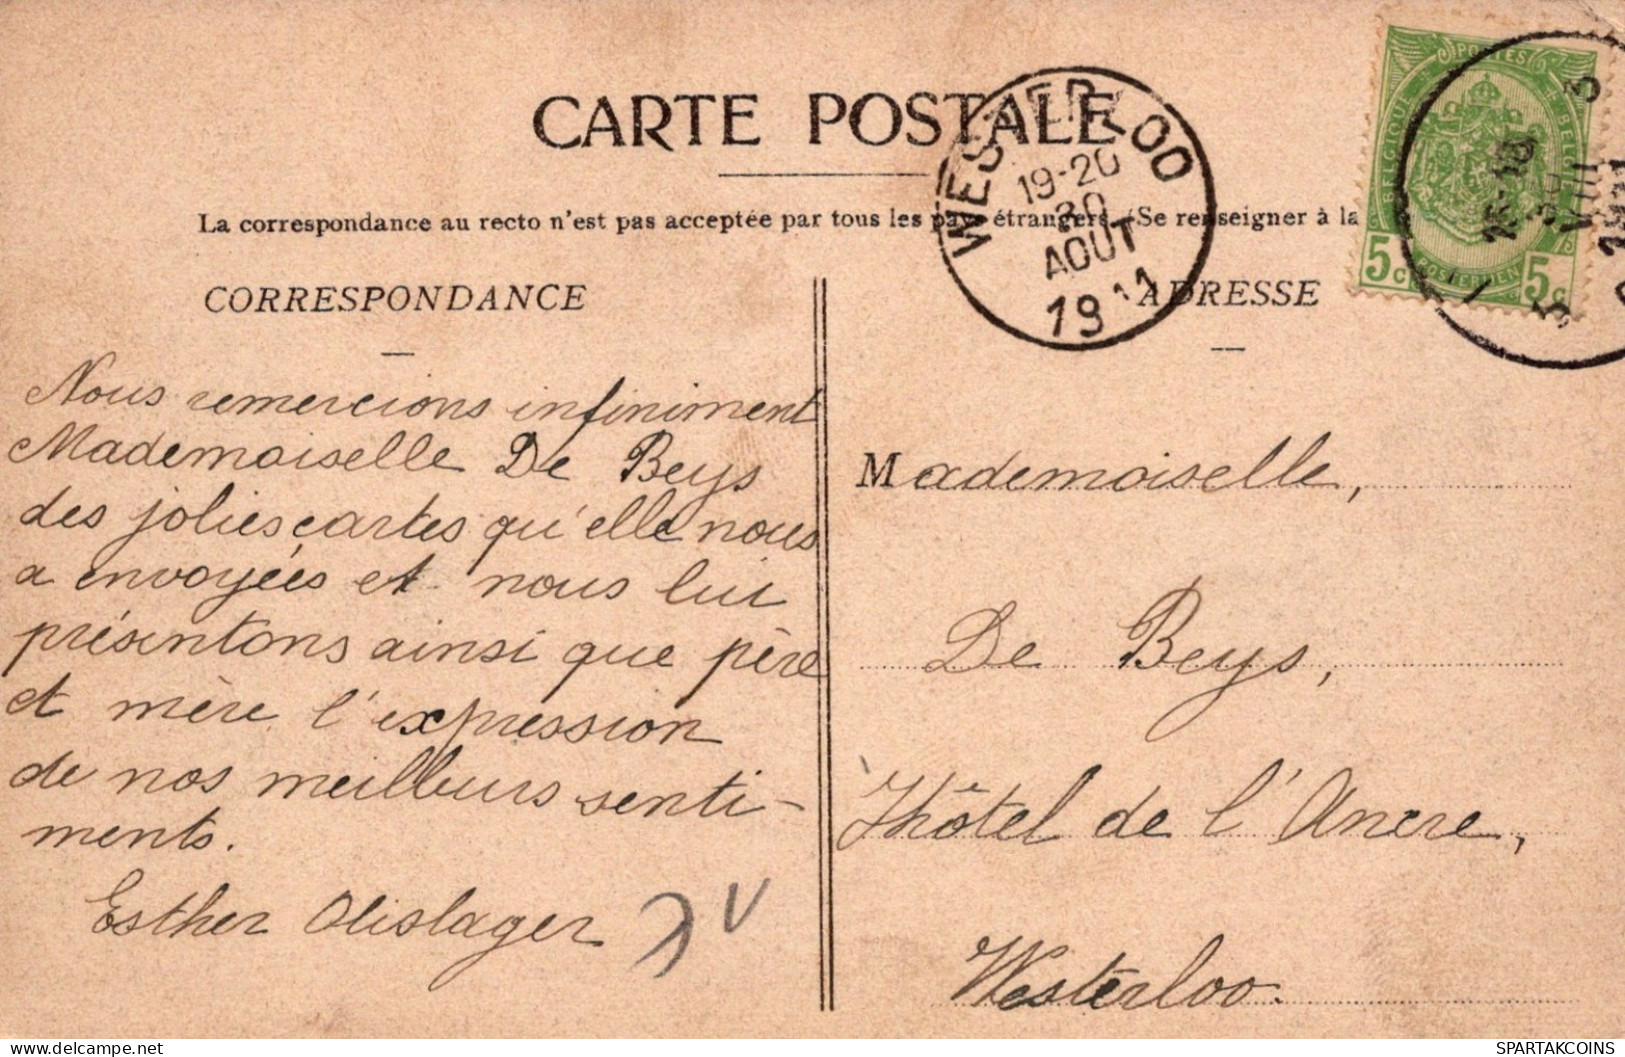 CARTE POSTALE
La correspondance au recto n'est pas acceptée par tous les pays étrangers. (Se renseigner à la
WESTERLOO
19-20
30
AOUT
1911
POSTES
BELGIQUE
BELGIE
POSTERIJEN
5c
5c
CORRESPONDANCE
Nous remercions infiniment
Mademoiselle De Beys
des jolies cartes qu'elle nous
a envoyées et nous lui
présentons ainsi que père
et mère l'expression
de nos meilleurs senti-
ments.
Esther Olislager
ADRESSE
Mademoiselle,
De Beys,
Hôtel de l'Ancre,
Westerloo.
www.delcampe.net
SPARTAKCOINS